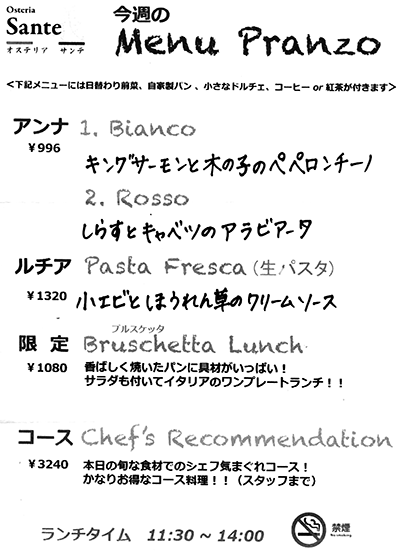 Osteria
Sante
オステリア サンテ
今週の
Menu Pranzo
<下記メニューには日替わり前菜、自家製パン、小さなドルチェ、コーヒー or 紅茶が付きます>
アンナ 1. Bianco
¥996
キングサーモンと木の子のペペロンチーノ
2. Rosso
しらすとキャベツのアラビアータ
ルチア Pasta Fresca(生パスタ)
¥1320 小エビとほうれん草のクリームソース
ブルスケッタ
限定 Bruschetta Lunch
¥1080 香ばしく焼いたパンに具材がいっぱい!
サラダも付いてイタリアのワンプレートランチ!!
コース Chef's Recommendation
¥3240 本日の旬な食材でのシェフ気まぐれコース!
かなりお得なコース料理!!(スタッフまで)
ランチタイム 11:30 ~ 14:00
禁煙
No smoking